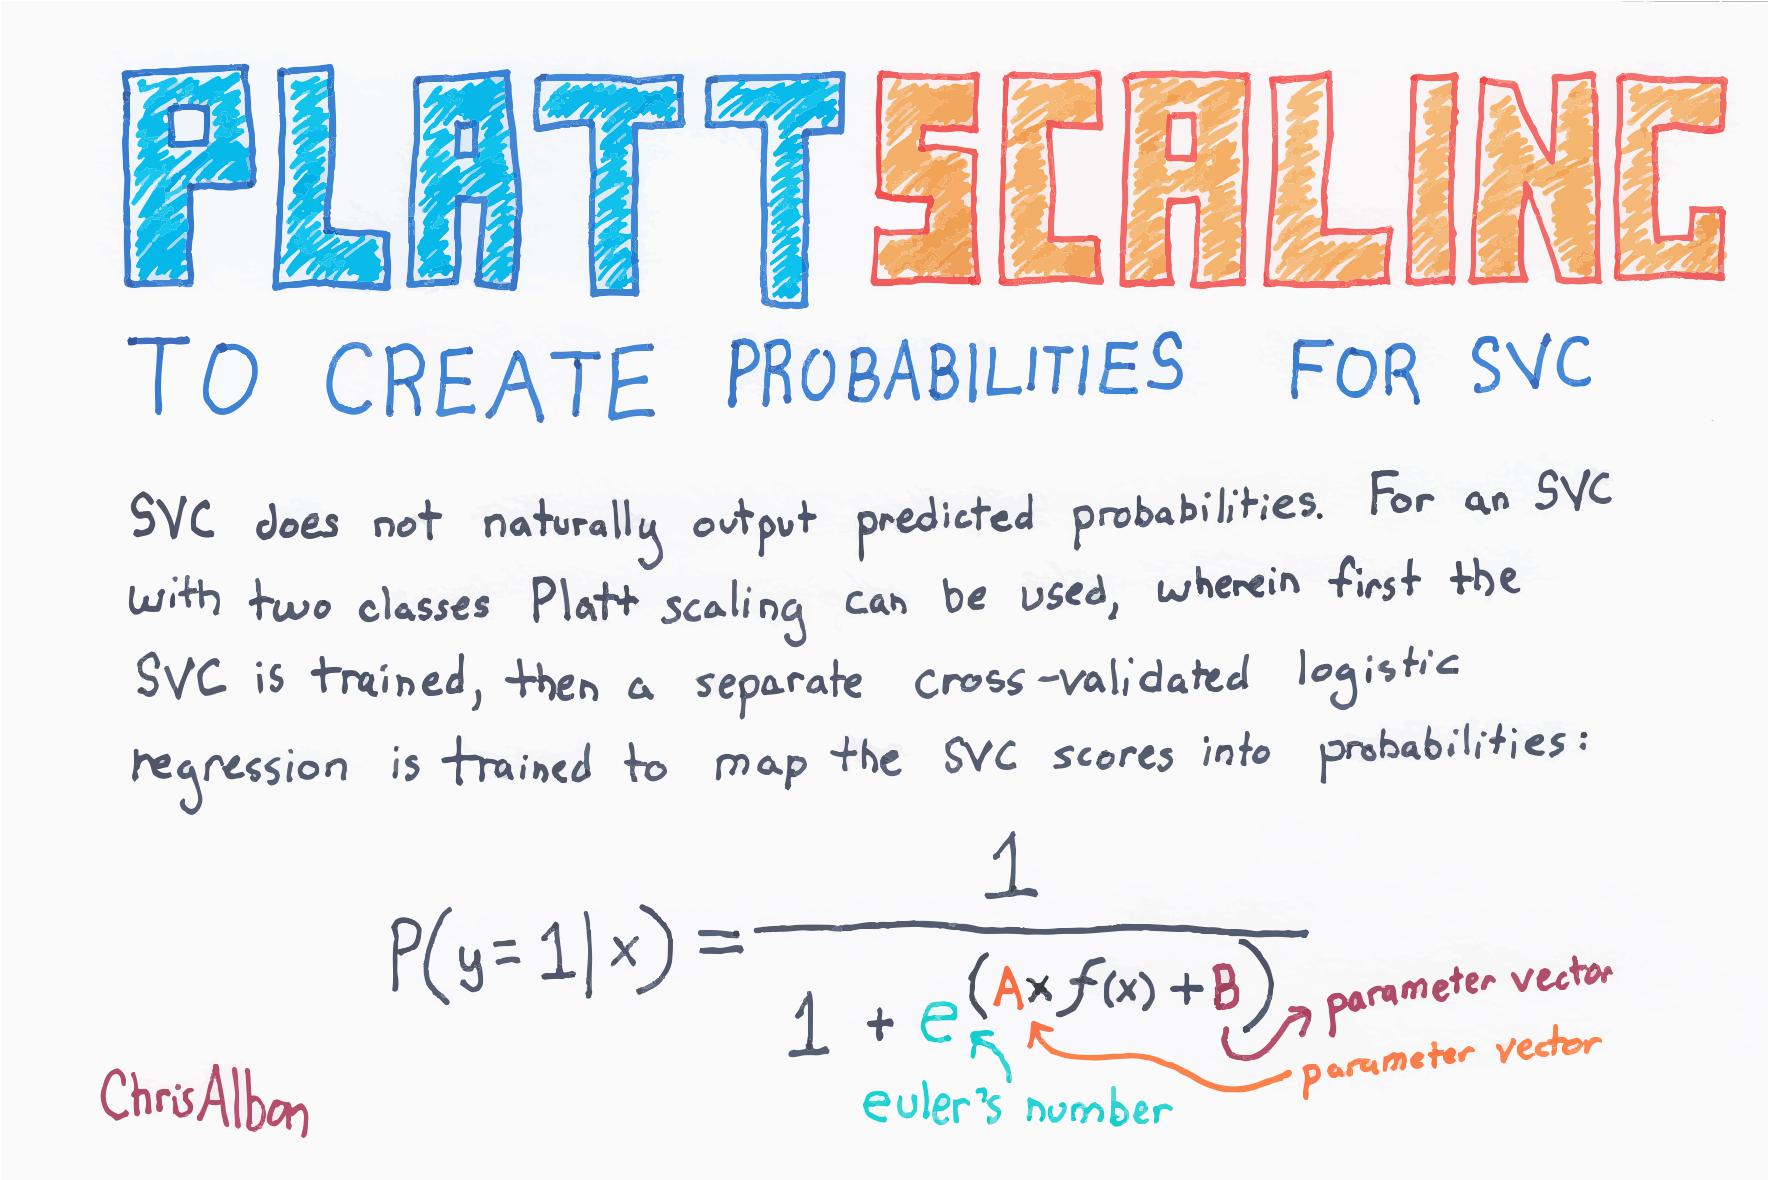 PLATT SCALING
TO CREATE PROBABILITIES FOR SVC
SVC does not naturally output predicted probabilities. For an SVC
with two classes Platt scaling can be used, wherein first the
SVC is trained, then a separate cross-validated logistic
regression is trained to map the SVC scores into probabilities:
P(y=1|x) = 1 / 1 + e^(A x f(x) + B)
parameter vector
parameter vector
euler's number
ChrisAlbon